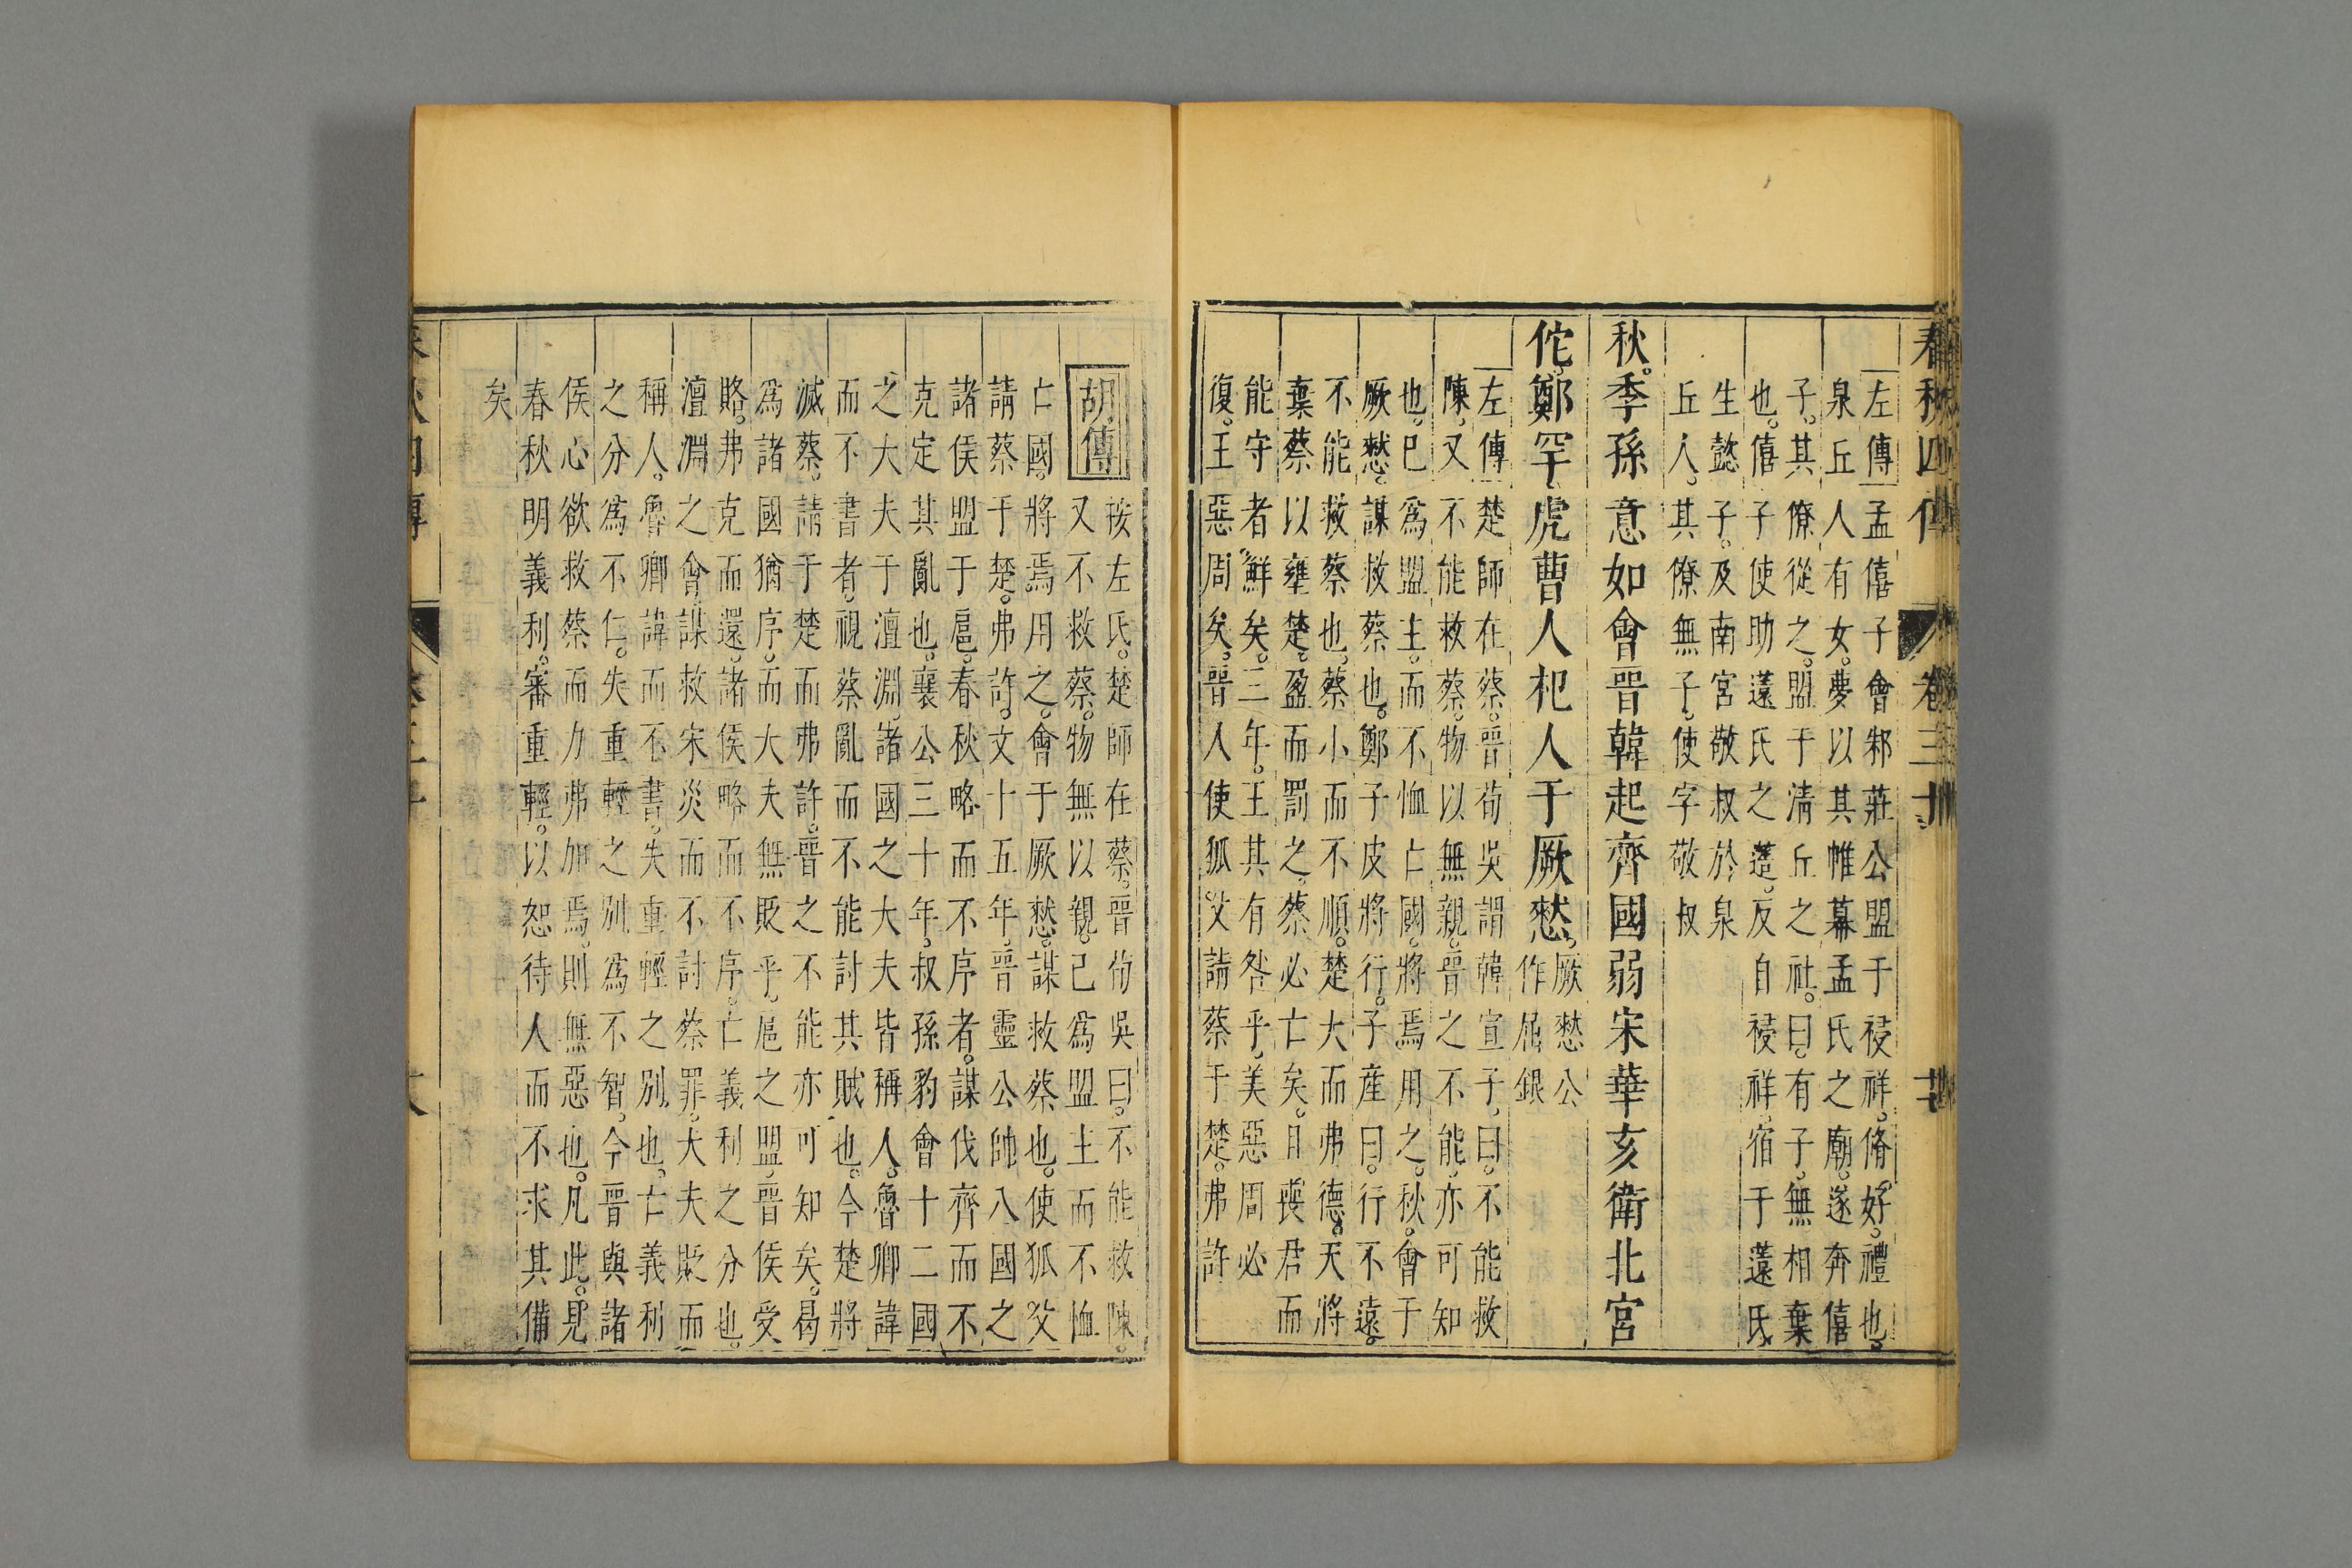 春秋四傳 卷三十
左傳孟僖子會邾莊公盟于祲祥脩好禮也
泉丘人有女夢以其帷幕孟氏之廟遂奔僖
子其僚從之盟于清丘之社曰有子無相棄
也僖子使助薳氏之簉反自祲祥宿于薳氏
生懿子及南宮敬叔於泉
丘人其僚無子使字敬叔
秋季孫意如會晉韓起齊國弱宋華亥衛北宮
佗鄭罕虎曹人杞人于厥憖厥憖公
作屈銀
左傳楚師在蔡晉荀吳謂韓宣子曰不能救
陳又不能救蔡物以無親晉之不能亦可知
也已爲盟主而不恤亡國將焉用之秋會于
厥憖謀救蔡也鄭子皮將行子産曰行不遠
不能救蔡也蔡小而不順楚大而弗德天將
棄蔡以壅楚盈而罰之蔡必亡矣且喪君而
能守者鮮矣三年王其有咎乎美惡周必
復王惡周矣晉人使狐父請蔡于楚弗許
胡傳按左氏楚師在蔡晉荀吳曰不能救陳
又不救蔡物無以親已爲盟主而不恤
亡國將焉用之會于厥憖謀救蔡也使狐父
請蔡于楚弗許文十五年晉靈公帥八國之
諸侯盟于扈春秋略而不序者謀伐齊而不
克定其亂也襄公三十年叔孫豹會十二國
之大夫于澶淵諸國之大夫皆稱人魯卿諱
而不書者視蔡亂而不能討其賊也今楚將
滅蔡請于楚而弗許晉之不能亦可知矣曷
爲諸國猶序而大夫無貶乎扈之盟晉侯受
賂弗克而還諸侯略而不序亡義利之分也
澶淵之會謀救宋災而不討蔡罪大夫貶而
稱人魯卿諱而不書失重輕之別也亡義利
之分爲不仁失重輕之別爲不智今晉與諸
侯心欲救蔡而力弗加焉則無惡也凡此見
春秋明義利審重輕以恕待人而不求其備
矣